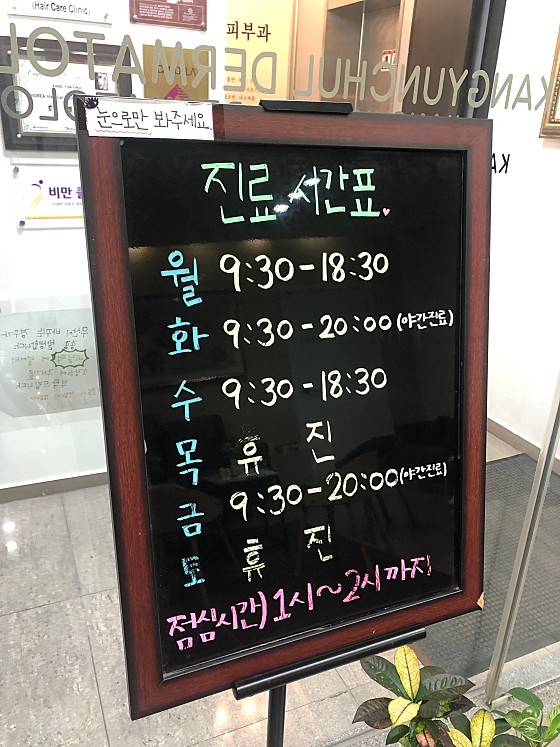 (Hair Care Clinic)
피부과
KANGYUNCHUL DERMATOL
비만 클
눈으로만 봐주세요.
진료 시간표.
월 9:30-18:30
화 9:30-20:00(야간진료)
수 9:30-18:30
목 휴 진
금 9:30-20:00(야간진료)
토 휴 진
점심시간) 1시~2시까지